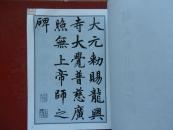 大元勅賜龍興
寺大覺普慈廣
照無上帝師之
碑